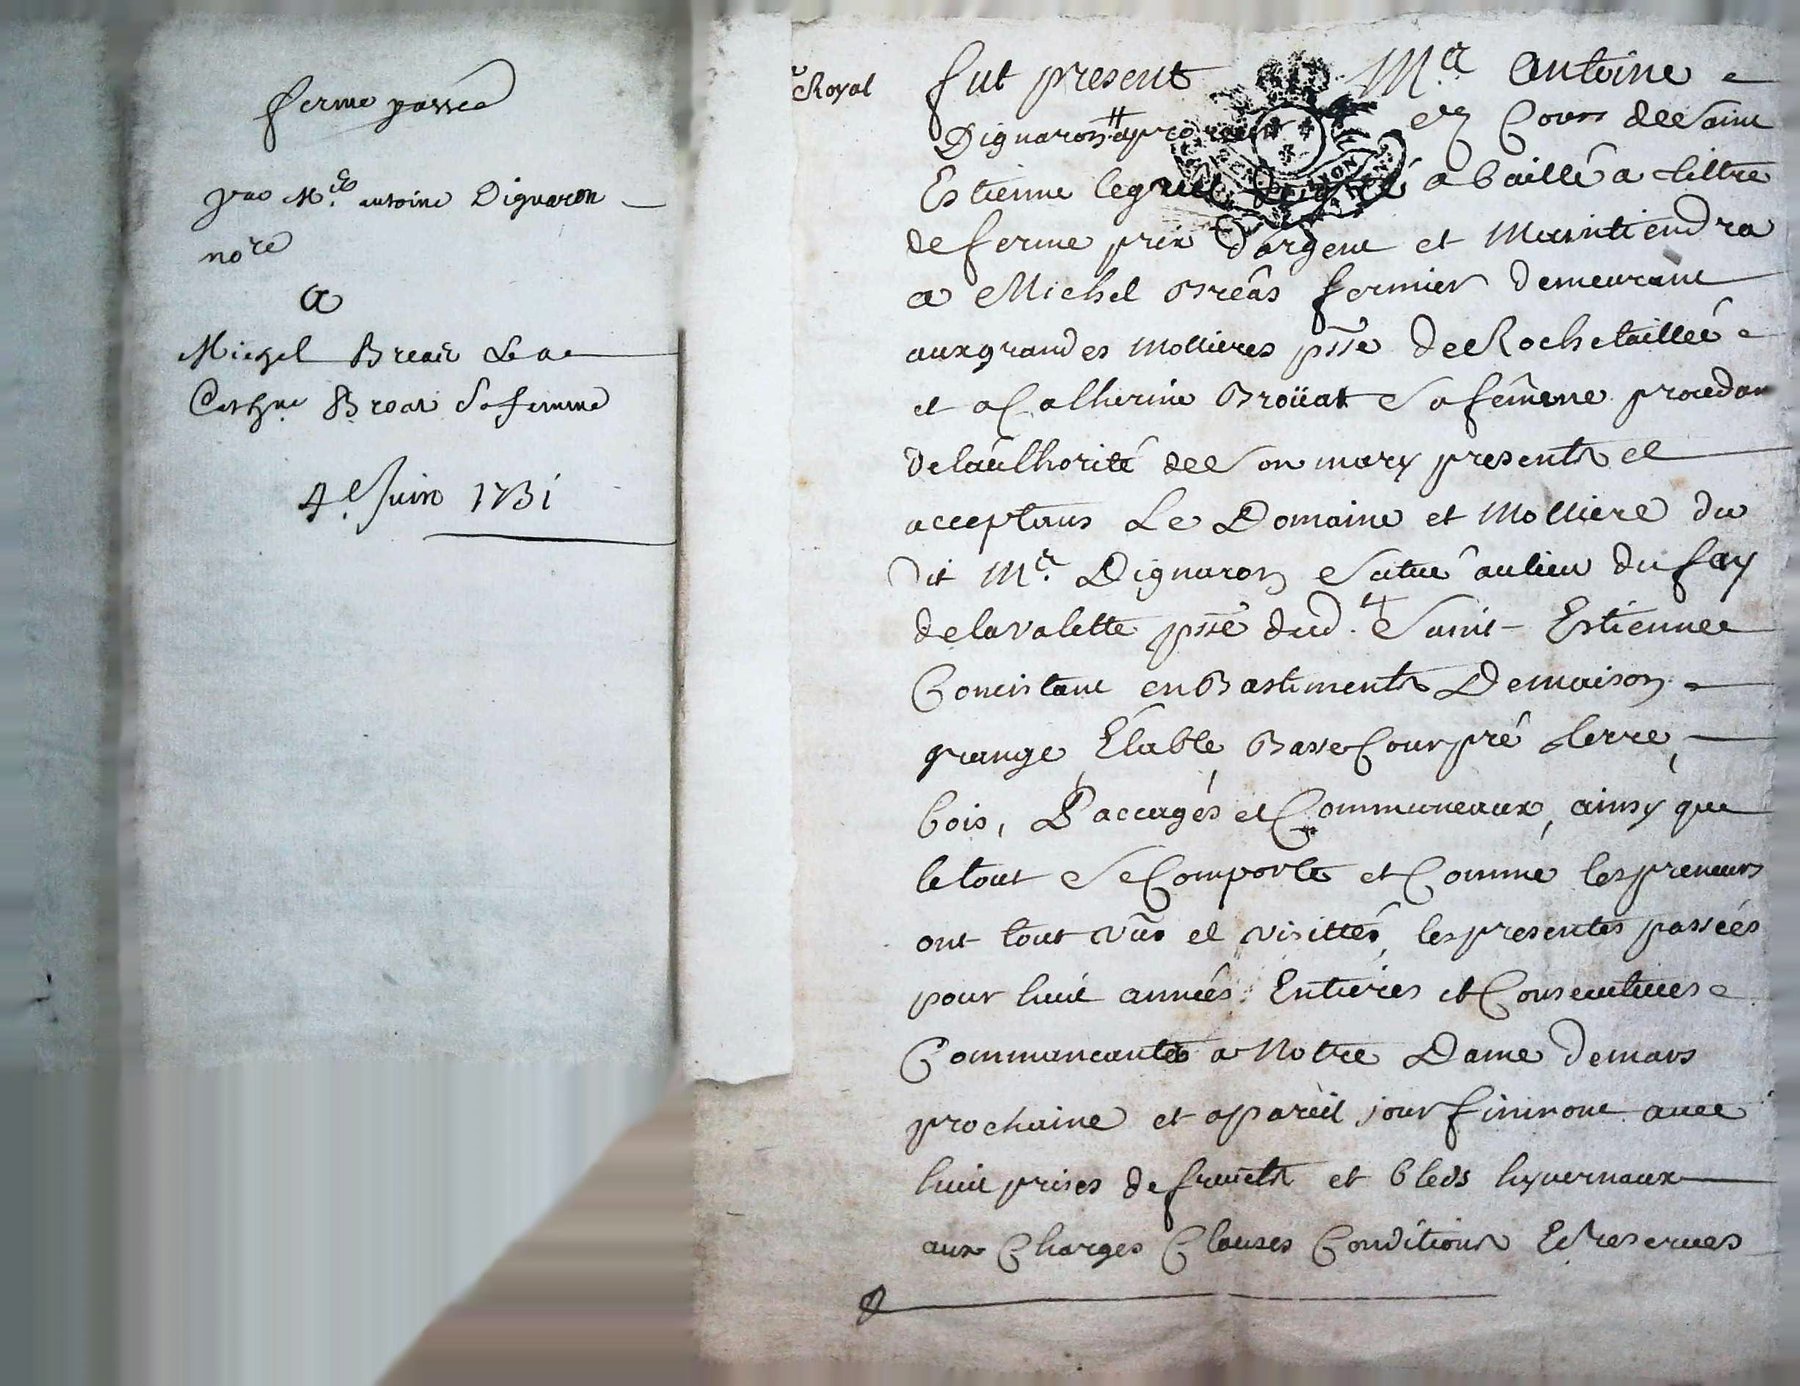 ferme passée
par Me. antoine Dignaron
nore
a
Michel Breas
Broat sa femme
4e. Juin 1731
Royal
fut present Me. antoine
Dignaron en Cour de Saint
Estienne lequel a baillé a tiltre
de ferme prix d'argent et Maintiendra
a Michel Breâs fermier demeurant
aux grandes Mollieres psse de Rochetailleé
et a Catherine Broüat Sa fême procedan
delauthorité de Son mary presents et
acceptans Le Domaine et Molliere du
dit Me. Dignaron Situé au lieu du fay
delavalette psse dud. Saint Estienne
Concistant en Bastiments De maison
grange Etable Basse Cour pré terre,
bois, Paccagés et Communeaux, ainsy que
le tout Se Comporte et Comme les preneurs
ont tout vûs et visittés, les presentes passeés
pour huit années Entieres et Consecutives
Commancantes a Notre Dame de mars
prochaine et a pareil jour finiront avec
huit prises de fruicts et bleds hyvernaux
aux Charges Clauses Conditions Et reserves